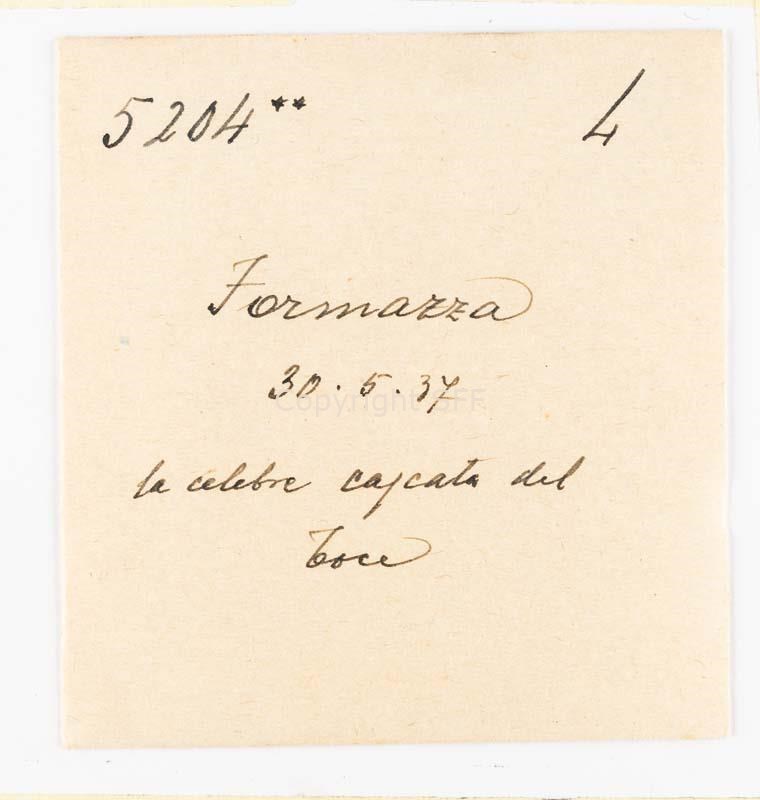 5204** 4
Formazza
30.5.37
la celebre cascata del
Toce